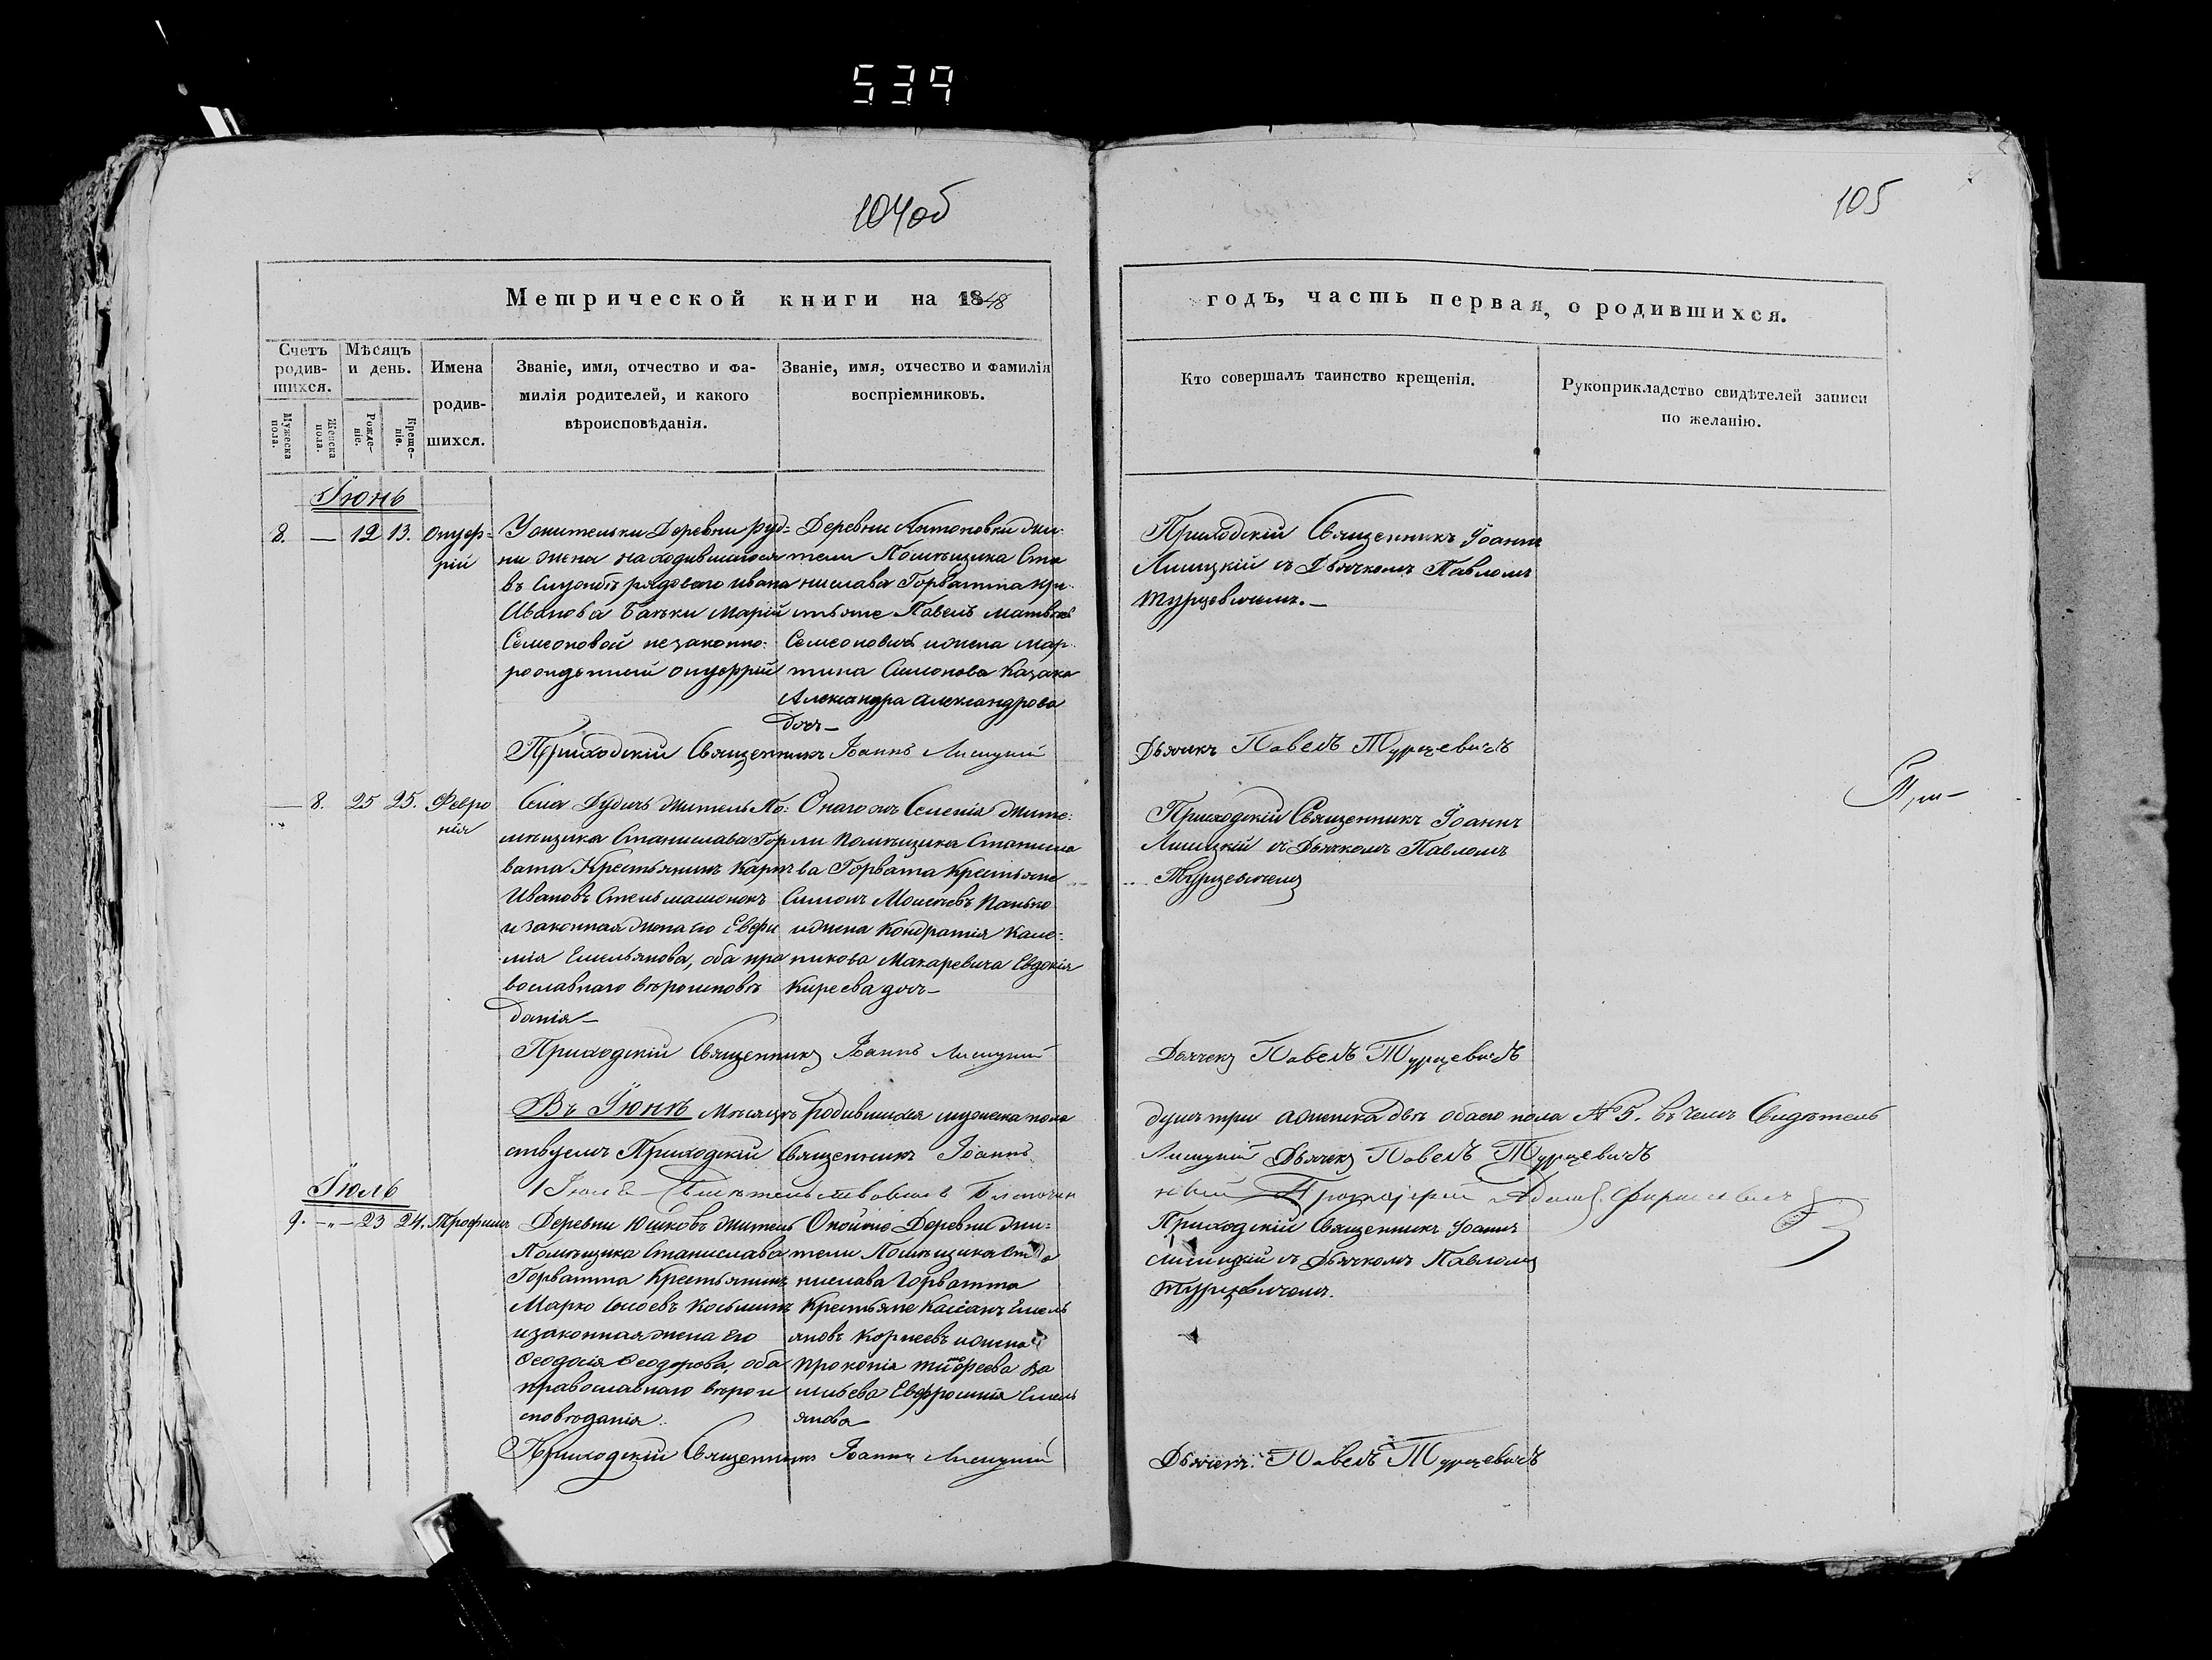 539
104об
105
Метрической книги на 1848
годъ, часть первая, о родившихся.
Счетъ родив-шихся.
Мѣсяцъ и день.
Имена родив-шихся.
Званіе, имя, отчество и фа-
милія родителей, и какого
вѣроисповѣданія.
Званіе, имя, отчество и фамилія
воспріемниковъ.
Кто совершалъ таинство крещенія.
Рукоприкладство свидѣтелей записи
по желанію.
Мужеска пола.
Женска пола.
Рожде-ніе.
Креще-ніе.
Іюнь
8. — 12 13. Онуф-
рій
Жительки Деревни Руд-
ни жена находившагося
въ Службѣ рядоваго Ивана
Иванова Батьки Марiи
Семеоновой незаконно-
рожденный Онуфрій
Деревни Антоновки жи-
тели Помѣщика Ста
нислава Горватта кре
стьяне Павелъ Матвѣевъ
Семеоновичъ и жена Мар
тина Симонова Казака
Александра Александрова
дочь—
Приходскій Священникъ Іоаннъ
Лисицкій съ Дьячкомъ Павломъ
Турцевичемъ.—
Приходскій Священникъ Іоаннъ Лисицкій
Дьячекъ Павелъ Турцевичъ
— 8. 25 25. Февро
нія
Села Дудичъ житель По-
мѣщика Станислава Гор
вата Крестьянинъ Карпъ
Ивановъ Стельмашонокъ
и законная жена его Евфи
мія Емельянова, оба пра
вославнаго вѣроисповѣ
данія—
Онаго жъ Селенія жите-
ли Помѣщика Станисла
ва Горвата Крестьяне
Симонъ Моисеевъ Панько
и жена Кондратія Кале-
никова Макаревича Евдокія
Киреева дочь—
Приходскій Священникъ Іоаннъ
Лисицкій съ Дьячкомъ Павломъ
Турцевичемъ
При—
Приходскій Священникъ Іоаннъ Лисицкій
Дьячекъ Павелъ Турцевичъ
Въ Іюнѣ Мѣсяцѣ родившихся мужеска пола
душъ три а женска двѣ обаего пола № 5. въ чемъ Свидѣтель
ствуемъ Приходскій Священникъ Іоаннъ
Лисицкій Дьячекъ Павелъ Турцевичъ
Іюля Свидѣтельствовалъ Благочин
ный Протоіерей Адамъ
Іюль
9. —„— 23 24. Трофимъ
Деревни Юшковъ житель
Помѣщика Станислава
Горватта Крестьянинъ
Марко Сысоевъ Косьминъ
и законная жена его
Ѳеодосія Ѳеодорова, оба
православнаго вѣрои
сповѣданія.
Оной же Деревни жи-
тели Помѣщика Ста
нислава Горватта
Крестьяне Касіанъ Емель
яновъ Корнеевъ и жена
Прокопія Тимофеева Ва
сильева Евфросинія Емель
янова
Приходскій Священникъ Іоаннъ
Лисицкій съ Дьячкомъ Павломъ
Турцевичемъ.
Приходскій Священникъ Іоаннъ Лисицкій
Дьячекъ Павелъ Турцевичъ